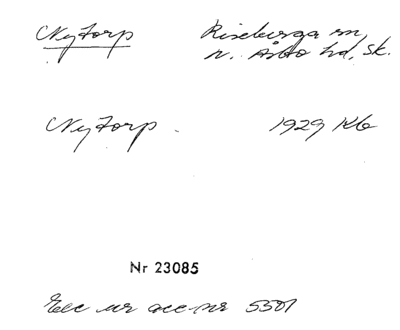 Nytorp Riseberga sn,
N. Åsbo hd, Sk.
Nytorp 1929 Kb
Nr 23085
Exc ur acc nr 5501